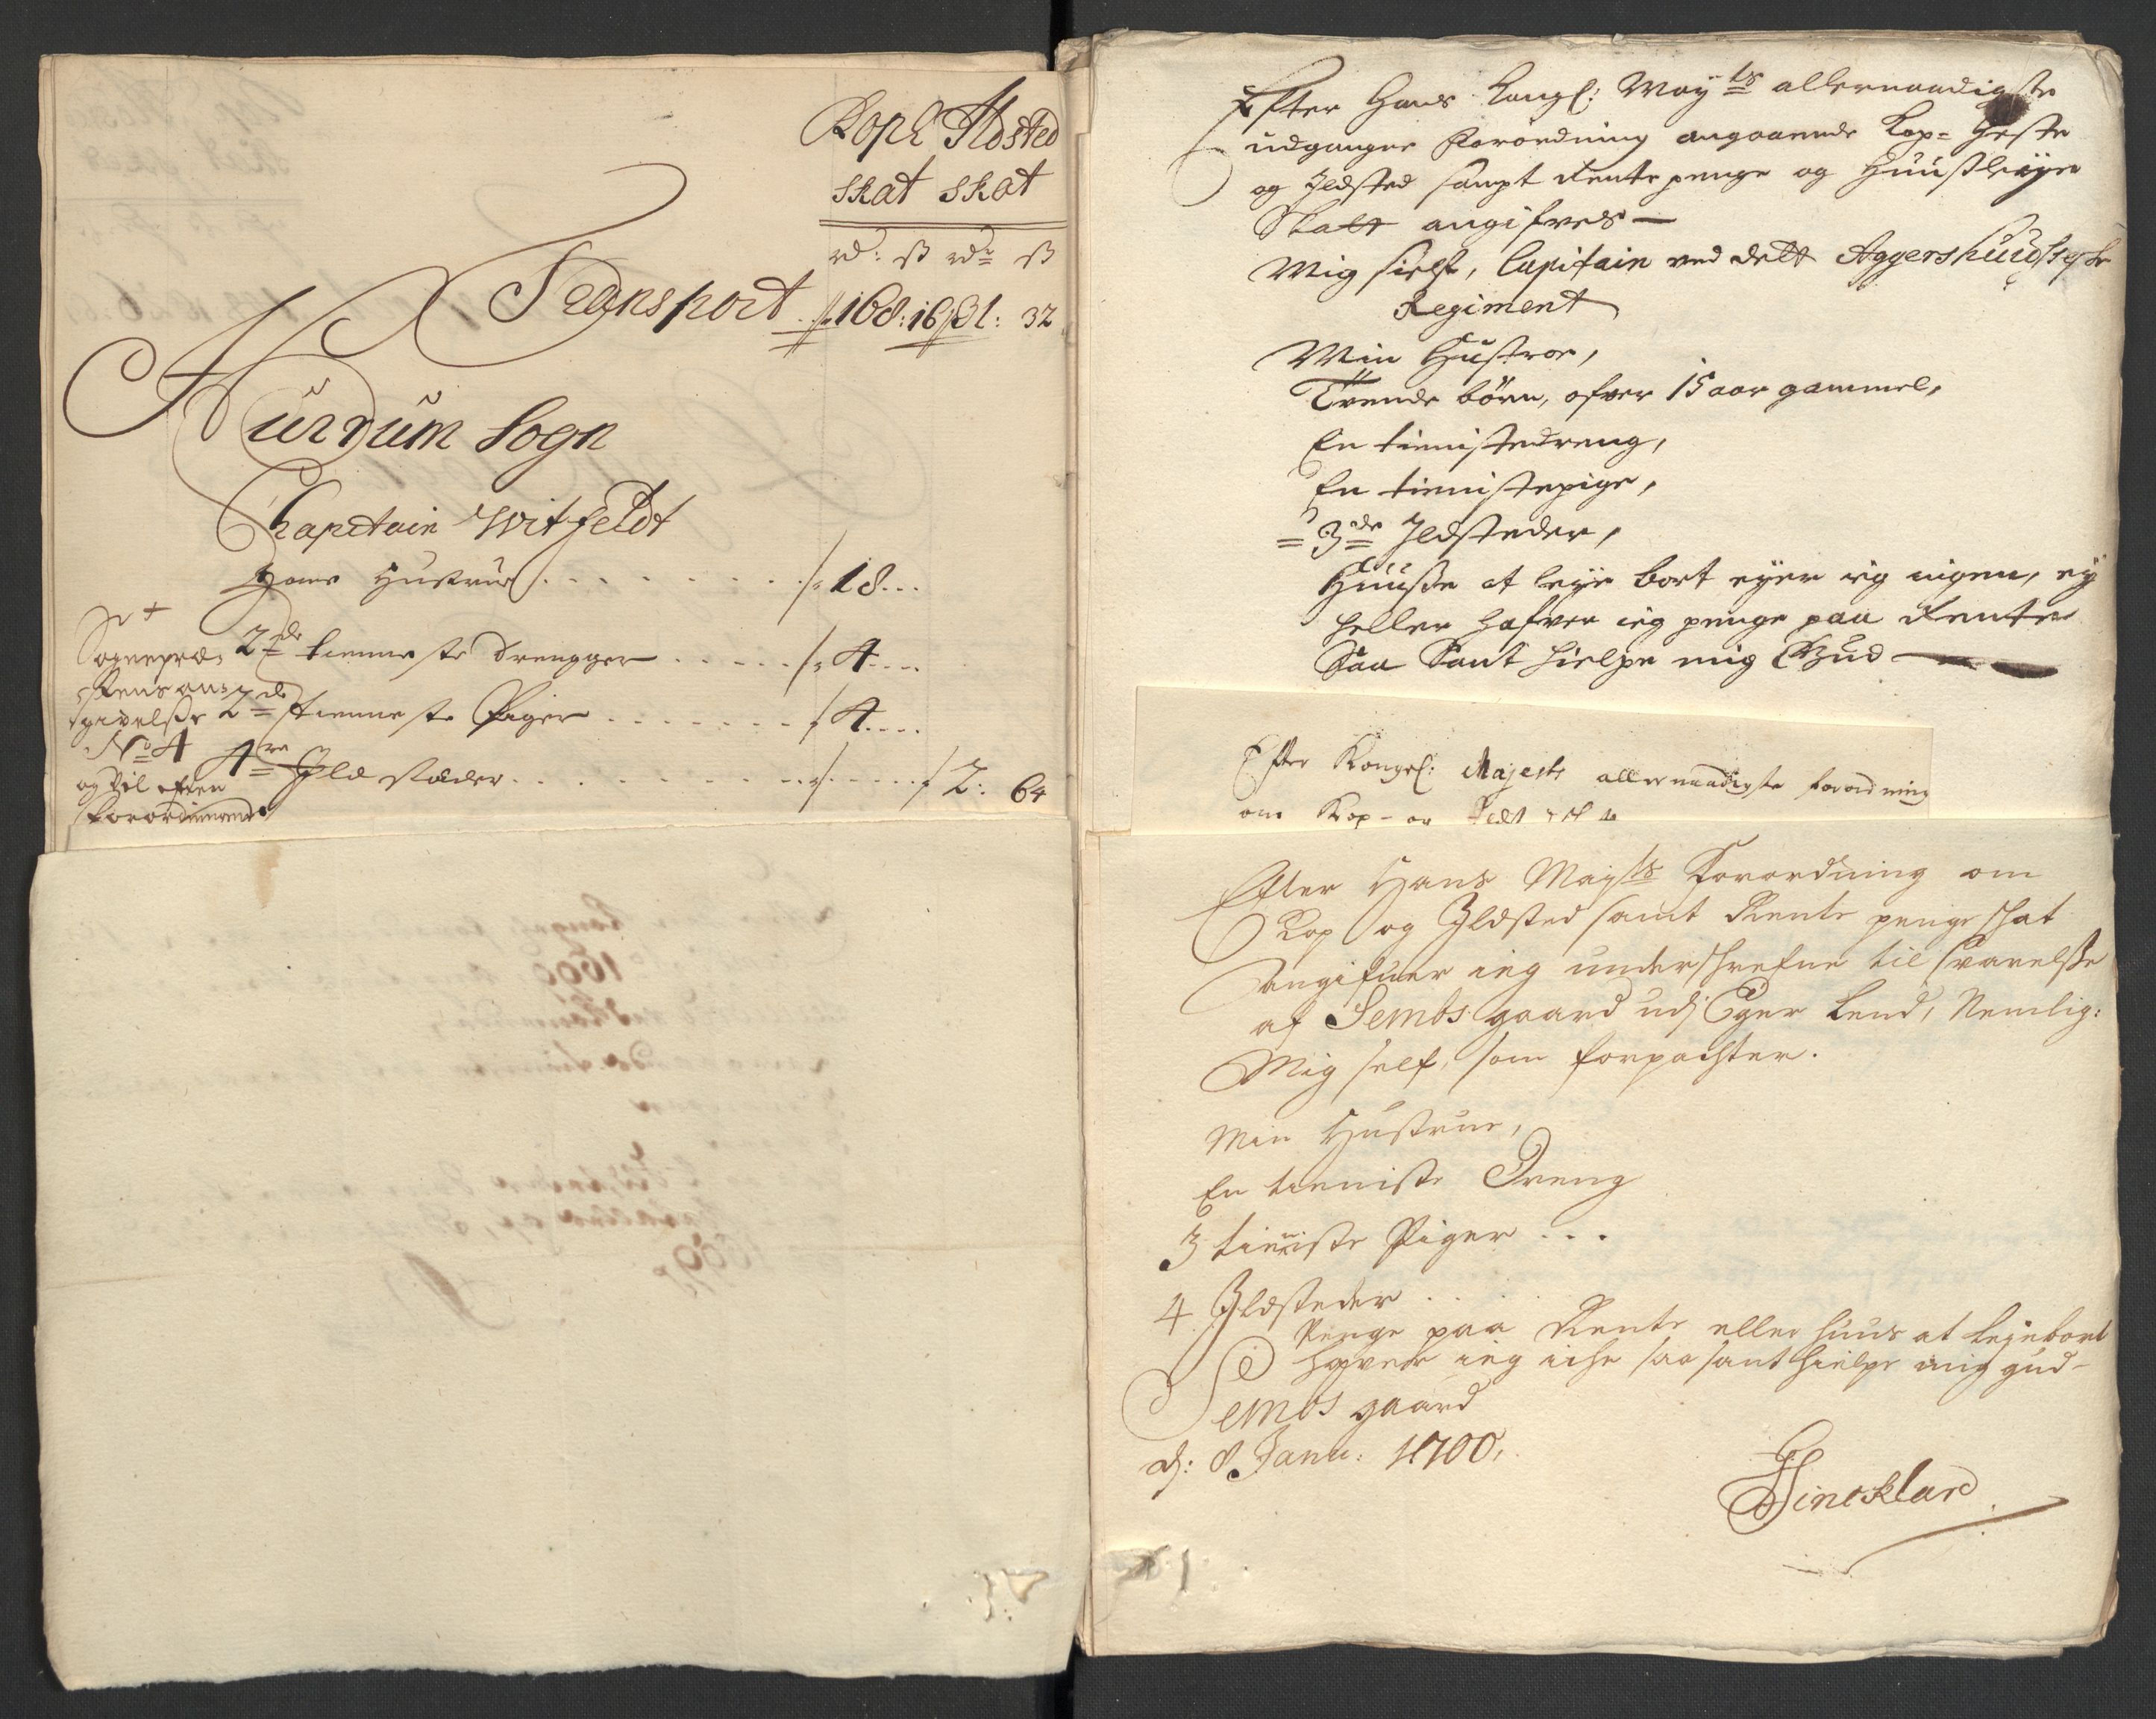 Kop & Ildsted
skat skat
rdr: ß rdr ß
Transport 168: 16 31: 32
Hurdum Sogn
Chapitain Witfeldt
Hans Hustrue . . . . . . . . . 18 . . .
Sognepræ-
2de tienneste Drengger . . . . . 4 . . . .
stens an-
givelsse 2de tienneste Piger . . . . . . . 4 . . . .
No 4 4re Ildstæder . . . . . . . . . . . . 2: 64
og vil efter
Forordningen
Efter Hans Kongl: Mayts allernaadigste
udgangne Forordning angaaende Kop- Heste
og Ildsted sampt Rentepenge og Huusleye
Skatt angifves
Mig sielf, Capitain ved dett Aggershuusiske
Regiment
Min Hustroe,
Trende börn, ofver 15 aar gammel,
En tienistedreng,
En tienistepige,
3de Ildsteder,
Huusse at leye bort eyer ieg ingen, ey
heller hafver ieg penge paa Rente
Saa Sant hielpe mig Gud
Efter Kongel: Majests allernaadigste forordning
om Kop- og
Efter Hans Mayts Forordning om
Kop og Ildsted samt Rente penge skat
angifuer ieg underskrefne til svarelsse
af Sembs gaard udj Eger Lend, Nemlig:
Mig self, som forpachter.
Min Hustrue,
En tieniste Dreng
3 tieniste Piger . . .
4 Ildsteder . .
Penge paa Rente eller huus at leje bort
hafver ieg iche saa sant hielpe mig gud-
Sembs gaard
dj: 8 Janu: 1700.